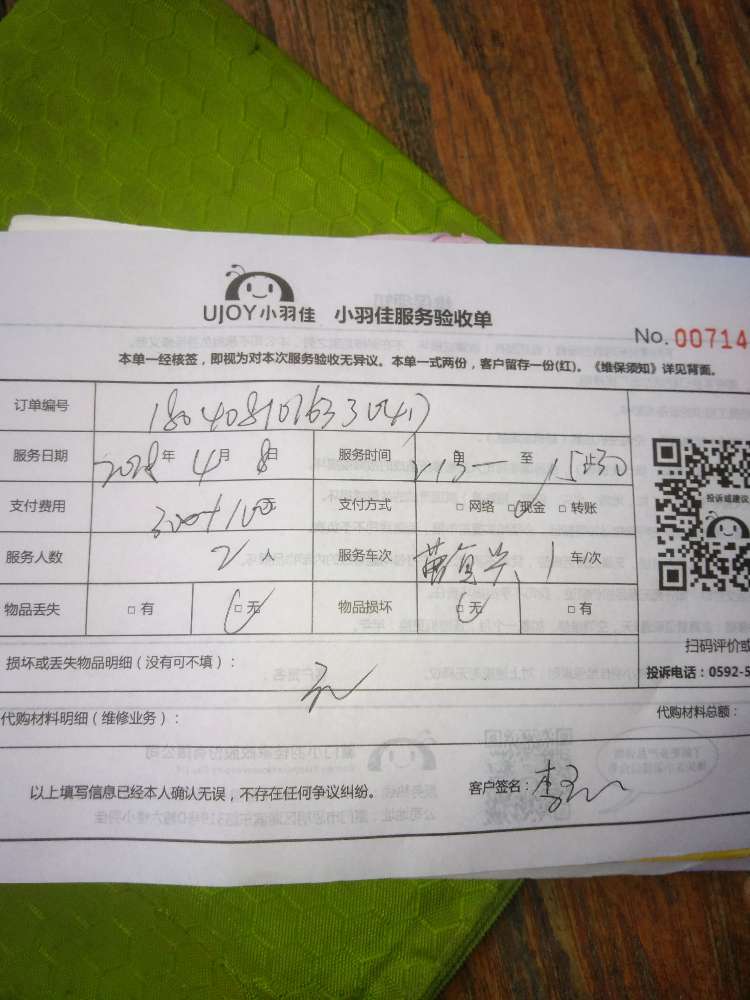 UJOY小羽佳 小羽佳服务验收单
No. 00714
本单一经核签，即视为对本次服务验收无异议。本单一式两份，客户留存一份(红)。《维保须知》详见背面。
订单编号
服务日期 2018年 4月 8日 服务时间 至 15:30
支付费用 300+100元 支付方式 □ 网络 □ 现金 □ 转账
服务人数 2 人 服务车次 1 车/次
物品丢失 □ 有 □ 无 物品损坏 □ 无 □ 有
投诉或建议
扫码评价或
投诉电话：0592-5
损坏或丢失物品明细（没有可不填）： 无
代购材料明细（维修业务）： 代购材料总额：
以上填写信息已经本人确认无误，不存在任何争议纠纷。 客户签名：李